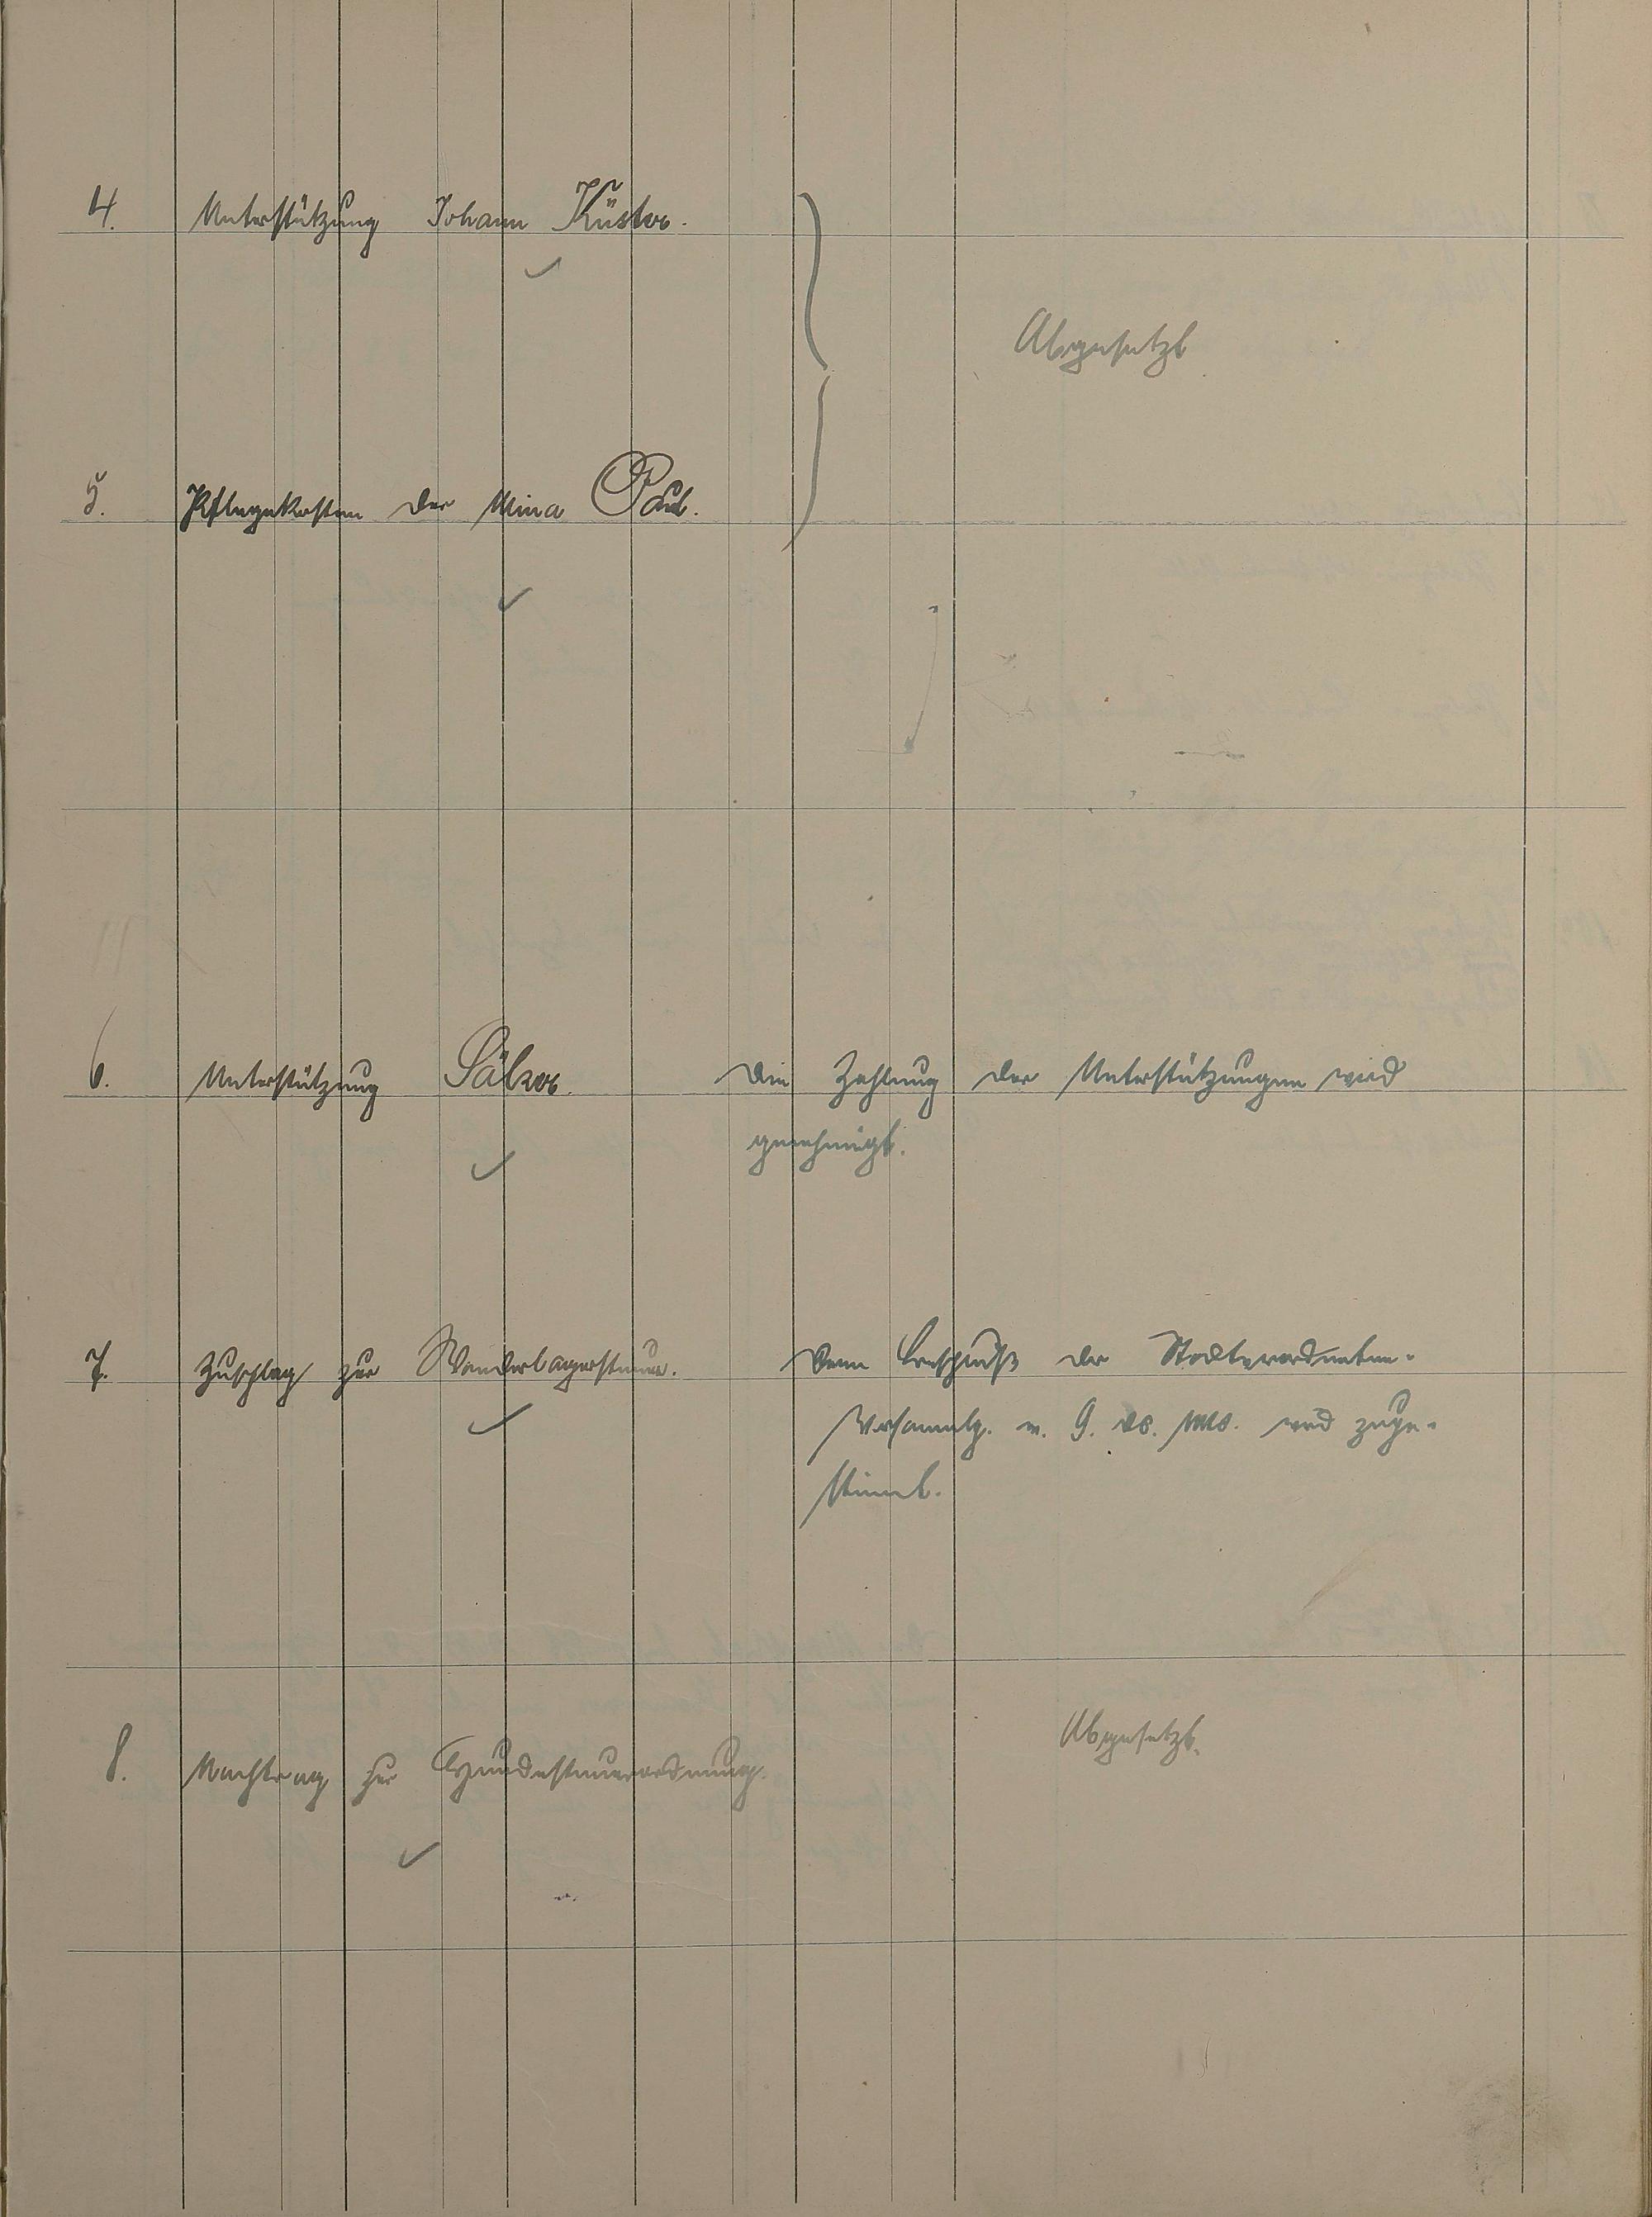 4. Unterstützung Johann Küster.
Abgesetzt
5. Pflegekosten der Mina Paul.
6. Unterstützung Sälzer. Die Zahlung der Unterstützungen wird
genehmigt.
7. Zuschlag zur Wanderlagersteuer. Dem Beschluß der Stadtverordneten-
Versammlg. v. 9. ds. Mts. wird zuge-
stimmt.
8. Nachtrag zur Hundesteuerordnung. Abgesetzt.